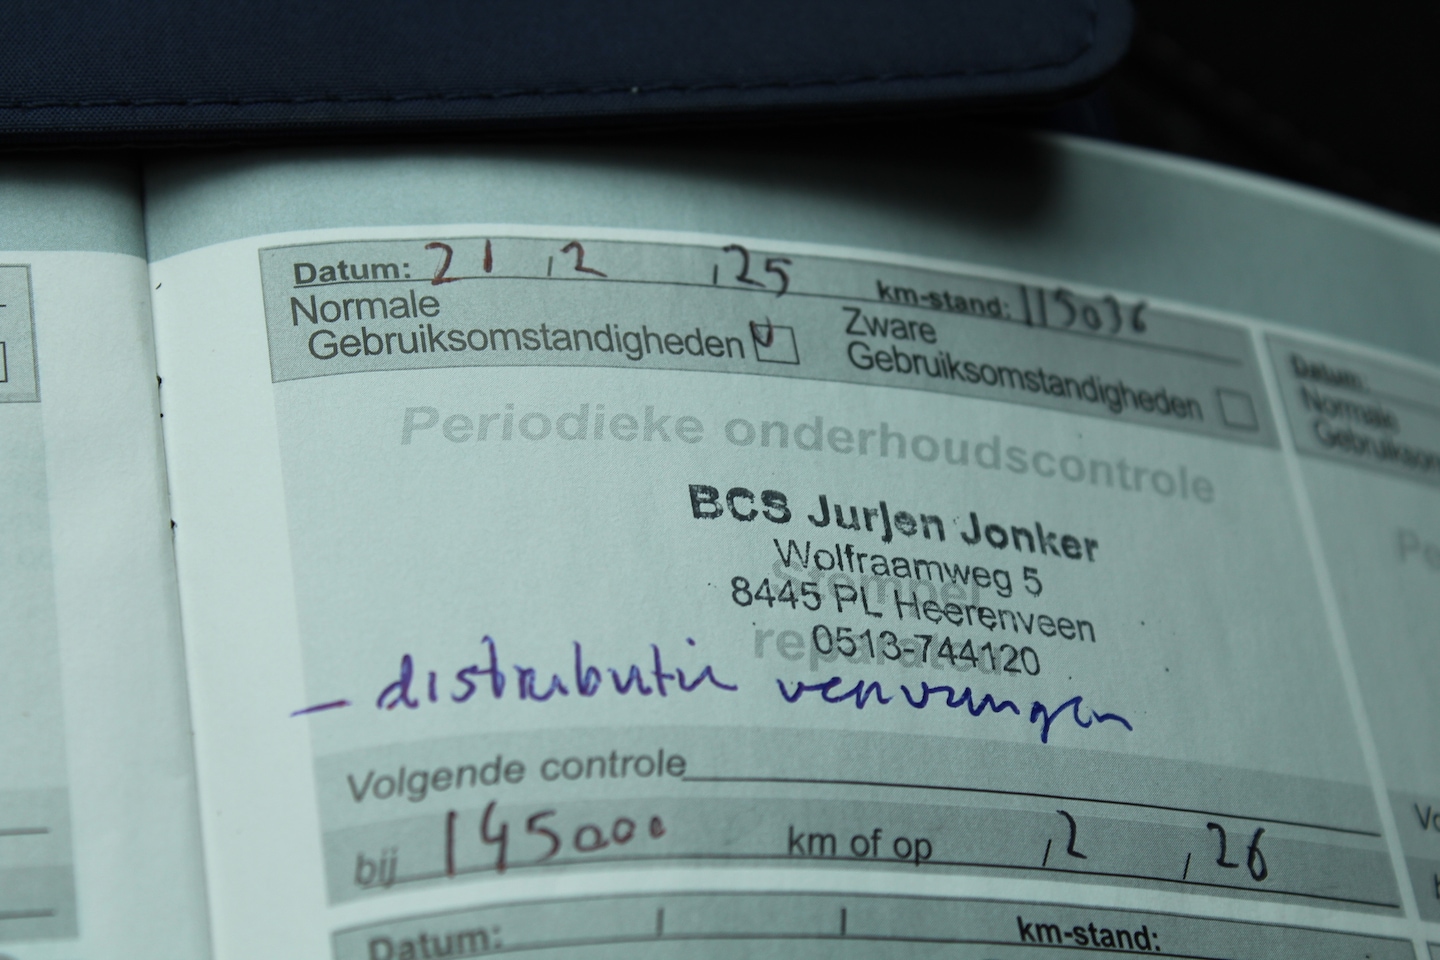 Datum: 21 , 2 , 25 km-stand: 115036
Normale
Gebruiksomstandigheden
Zware
Gebruiksomstandigheden
Periodieke onderhoudscontrole
BCS Jurjen Jonker
Wolfraamweg 5
8445 PL Heerenveen
0513-744120
- distributie vervangen
Volgende controle
bij 145000 km of op , 2 , 26
Datum: km-stand:
Datum:
Normale